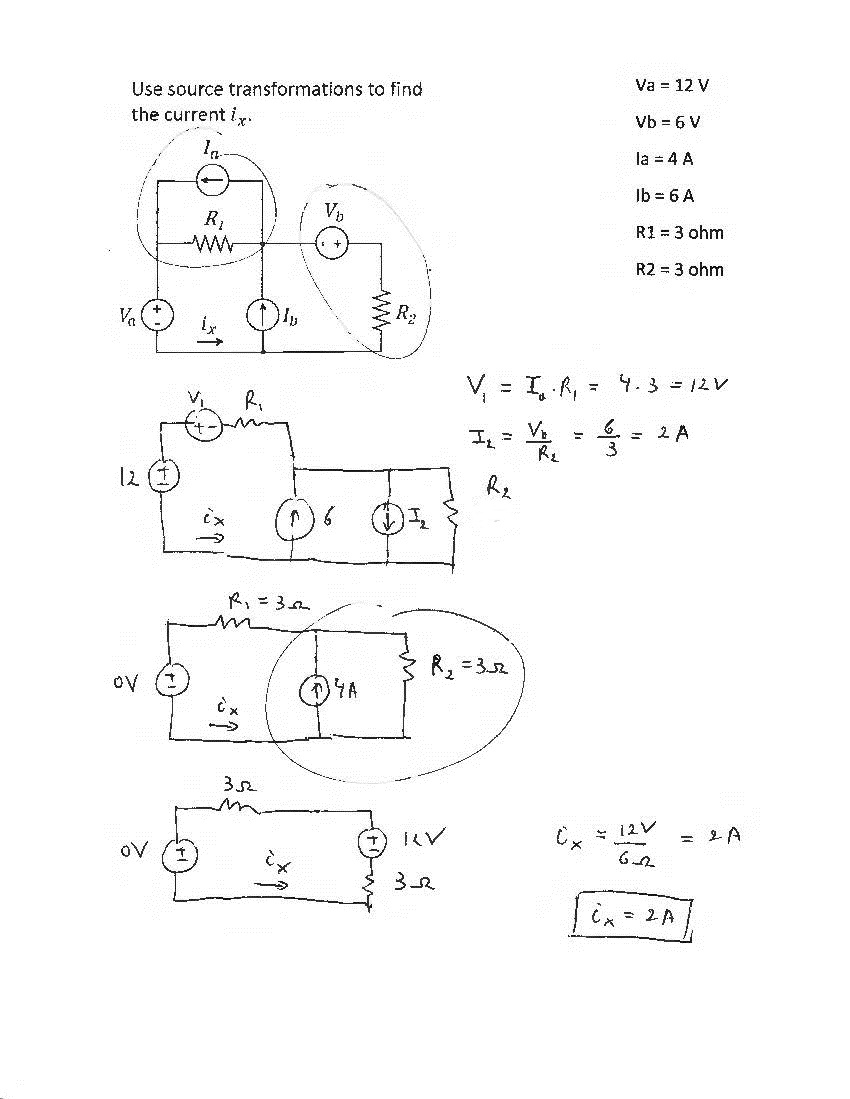 Use source transformations to find
the current iₓ.
Va = 12 V
Vb = 6 V
Ia = 4 A
Ib = 6 A
R1 = 3 ohm
R2 = 3 ohm
Iₐ
R₁
V_b
- +
Vₐ + -
iₓ
I_b
R₂
V₁ = Iₐ · R₁ = 4 · 3 = 12V
I₂ = V_b / R₂ = 6 / 3 = 2 A
V₁ R₁
+ -
12 + -
iₓ
6
I₂
R₂
R₁ = 3Ω
0V + -
iₓ
4A
R₂ = 3Ω
3Ω
0V + -
iₓ
+ - 12V
3Ω
iₓ = 12V / 6Ω = 2 A
iₓ = 2 A